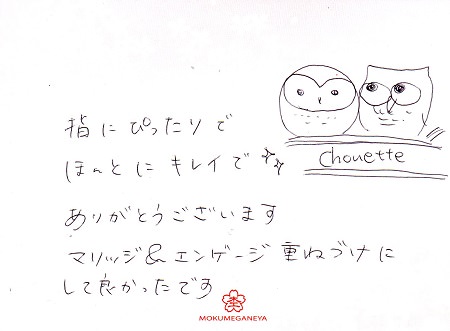 指にぴったりで
ほんとにキレイで
ありがとうございます
マリッジ&エンゲージ重ねづけに
して良かったです
Chouette
MOKUMEGANEYA